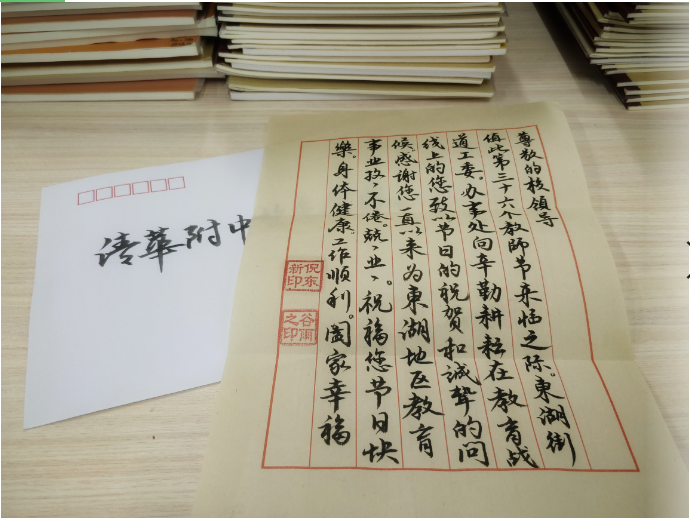 尊敬的校领导
值此第三十六个教師节来临之际。東湖街
道工委。办事处向辛勤耕耘在教育战
线上的您致以节日的祝賀和誠挚的问
候。感谢您一直以来为東湖地区教育
事业孜ヽ不倦。兢ヽ业ヽ。祝福您节日快
樂。身体健康。工作順利。阖家幸福
倪东
新印
谷雨
之印
清華附中